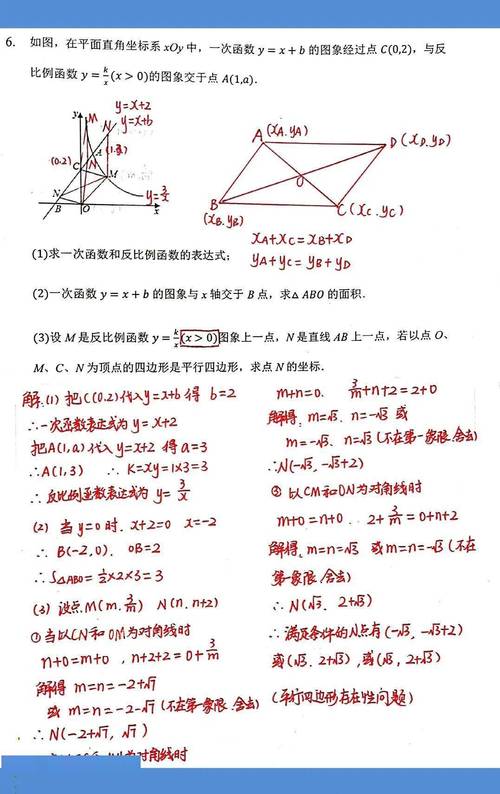 6. 如图，在平面直角坐标系 xOy 中，一次函数 y = x + b 的图象经过点 C(0,2)，与反
比例函数 y = k/x (x > 0)的图象交于点 A(1,a).
y=x+2
y=x+b
y
M
N
(0.2)
C
A
N
M
N
B
O
x
y=3/x
A (xA.yA)
D (xD.yD)
O
B
(xB.yB)
C (xC.yC)
xA+xC=xB+xD
yA+yC=yB+yD
(1)求一次函数和反比例函数的表达式；
(2)一次函数 y = x + b 的图象与 x 轴交于 B 点，求△ ABO 的面积.
(3)设 M 是反比例函数 y = k/x (x > 0)图象上一点，N 是直线 AB 上一点，若以点 O、
M、C、N 为顶点的四边形是平行四边形，求点 N 的坐标.
解.(1) 把 C(0.2)代入y=x+b 得 b=2
∴一次函数表达式为 y=x+2
把A(1,a)代入 y=x+2 得 a=3
∴A(1,3) ∴ K=xy=1×3=3
∴反比例函数表达式为 y=3/x
(2) 当 y=0 时. x+2=0 x=-2
∴ B(-2,0). OB=2
∴S△ABO=1/2×2×3=3
(3) 设点 M(m.3/m) N(n.n+2)
①当以CN和OM为对角线时
n+0=m+0 , n+2+2=0+3/m
解得 m=n=-2+√7
或 m=n=-2-√7 (不在第一象限.舍去)
∴N(-2+√7, √7)
为对角线时
m+n=0. 3/m+n+2=2+0
解得. m=√3. n=-√3 或
m=-√3. n=√3 (不在第一象限.舍去)
∴N(-√3, -√3+2)
③ 以CM和ON为对角线时
m+0=n+0 . 2+3/m=0+n+2
解得. m=n=√3 或m=n=-√3 (不在
第一象限,舍去)
∴ N(√3. 2+√3)
∴ 满足条件的N点有 (-√3, -√3+2)
或 (√3. 2+√3) , 或 (√3, 2+√3)
(平行四边形存在性问题)